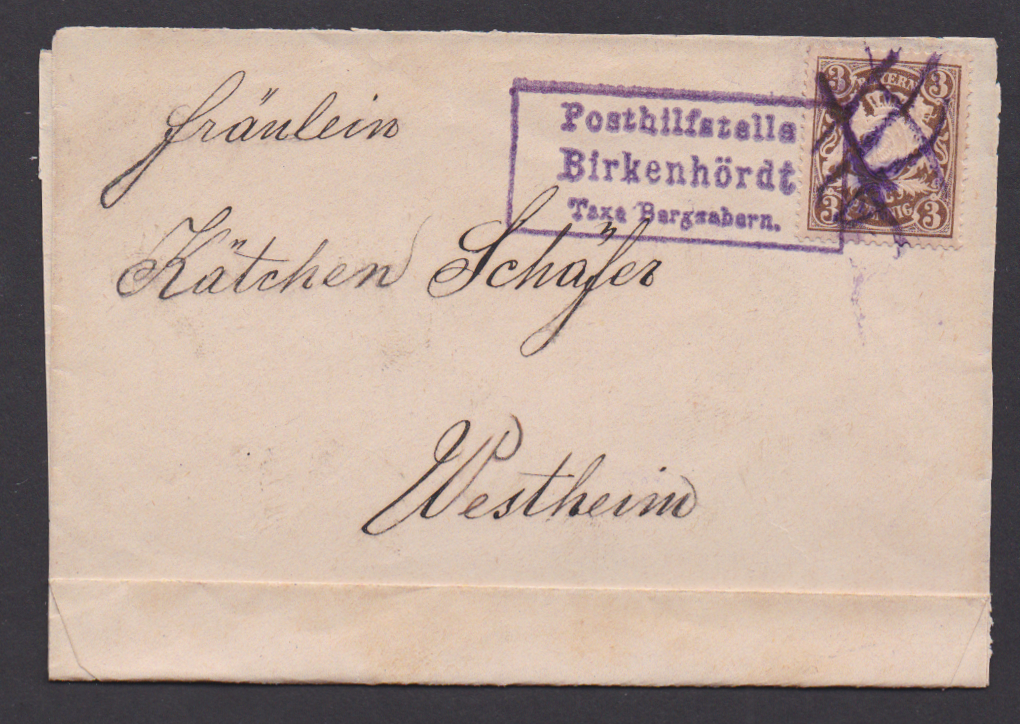 fräulein
Kätchen Schäfer
Westheim
Posthilfstelle
Birkenhördt
Taxe Bergzabern.
3 BAYERN 3
3 3